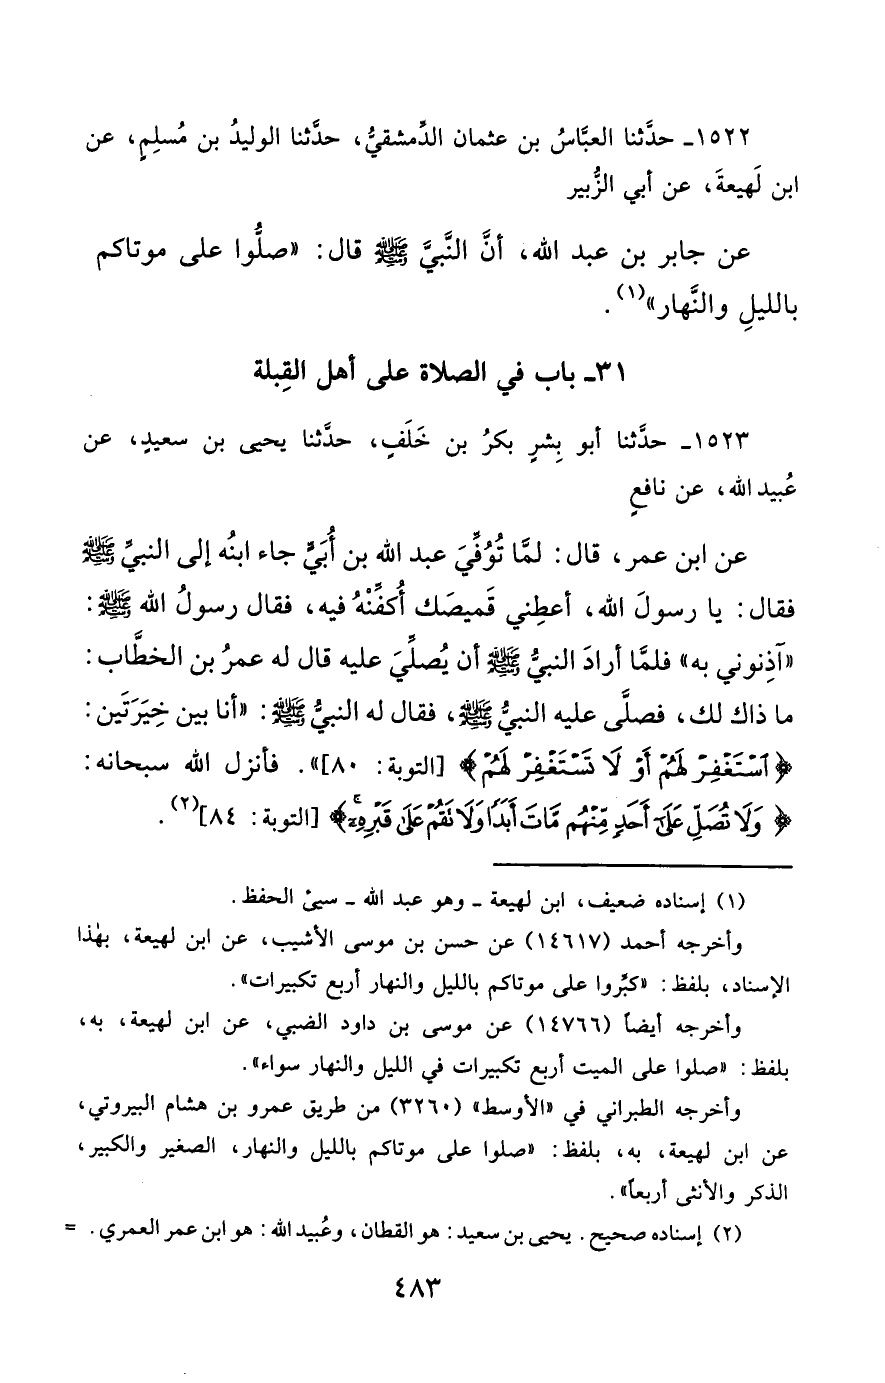 ١٥٢٢ـ حدَّثنا العبَّاسُ بن عثمان الدِّمشقيُّ، حدَّثنا الوليدُ بن مُسلِمٍ، عن
ابن لَهيعةَ، عن أبي الزُّبير
عن جابر بن عبد الله، أنَّ النَّبيَّ ﷺ قال: «صلُّوا على موتاكم
بالليلِ والنَّهار»(١).
٣١ـ باب في الصلاة على أهل القِبلة
١٥٢٣ـ حدَّثنا أبو بِشرٍ بكرُ بن خَلَفٍ، حدَّثنا يحيى بن سعيدٍ، عن
عُبيد الله، عن نافعٍ
عن ابن عمر، قال: لمَّا تُوُفِّيَ عبد الله بن أُبَيٍّ جاء ابنُه إلى النبيِّ ﷺ
فقال: يا رسولَ الله، أعطِني قَميصَك أُكفِّنْهُ فيه، فقال رسولُ الله ﷺ:
«آذِنوني به» فلمَّا أرادَ النبيُّ ﷺ أن يُصلِّيَ عليه قال له عمرُ بن الخطَّاب:
ما ذاك لك، فصلَّى عليه النبيُّ ﷺ، فقال له النبيُّ ﷺ: «أنا بين خِيَرَتَين:
﴿ٱسْتَغْفِرْ لَهُمْ أَوْ لَا تَسْتَغْفِرْ لَهُمْ﴾ [التوبة: ٨٠]». فأنزل الله سبحانه:
﴿وَلَا تُصَلِّ عَلَىٰٓ أَحَدٍ مِّنْهُم مَّاتَ أَبَدًا وَلَا تَقُمْ عَلَىٰ قَبْرِهِۦٓ﴾ [التوبة: ٨٤](٢).
(١) إسناده ضعيف، ابن لهيعة ـ وهو عبد الله ـ سيئ الحفظ.
وأخرجه أحمد (١٤٦١٧) عن حسن بن موسى الأشيب، عن ابن لهيعة، بهٰذا
الإسناد، بلفظ: «كبِّروا على موتاكم بالليل والنهار أربع تكبيرات».
وأخرجه أيضاً (١٤٧٦٦) عن موسى بن داود الضبي، عن ابن لهيعة، به،
بلفظ: «صلوا على الميت أربع تكبيرات في الليل والنهار سواء».
وأخرجه الطبراني في «الأوسط» (٣٢٦٠) من طريق عمرو بن هشام البيروتي،
عن ابن لهيعة، به، بلفظ: «صلوا على موتاكم بالليل والنهار، الصغير والكبير،
الذكر والأنثى أربعاً».
(٢) إسناده صحيح. يحيى بن سعيد: هو القطان، وعُبيد الله: هو ابن عمر العمري. =
٤٨٣